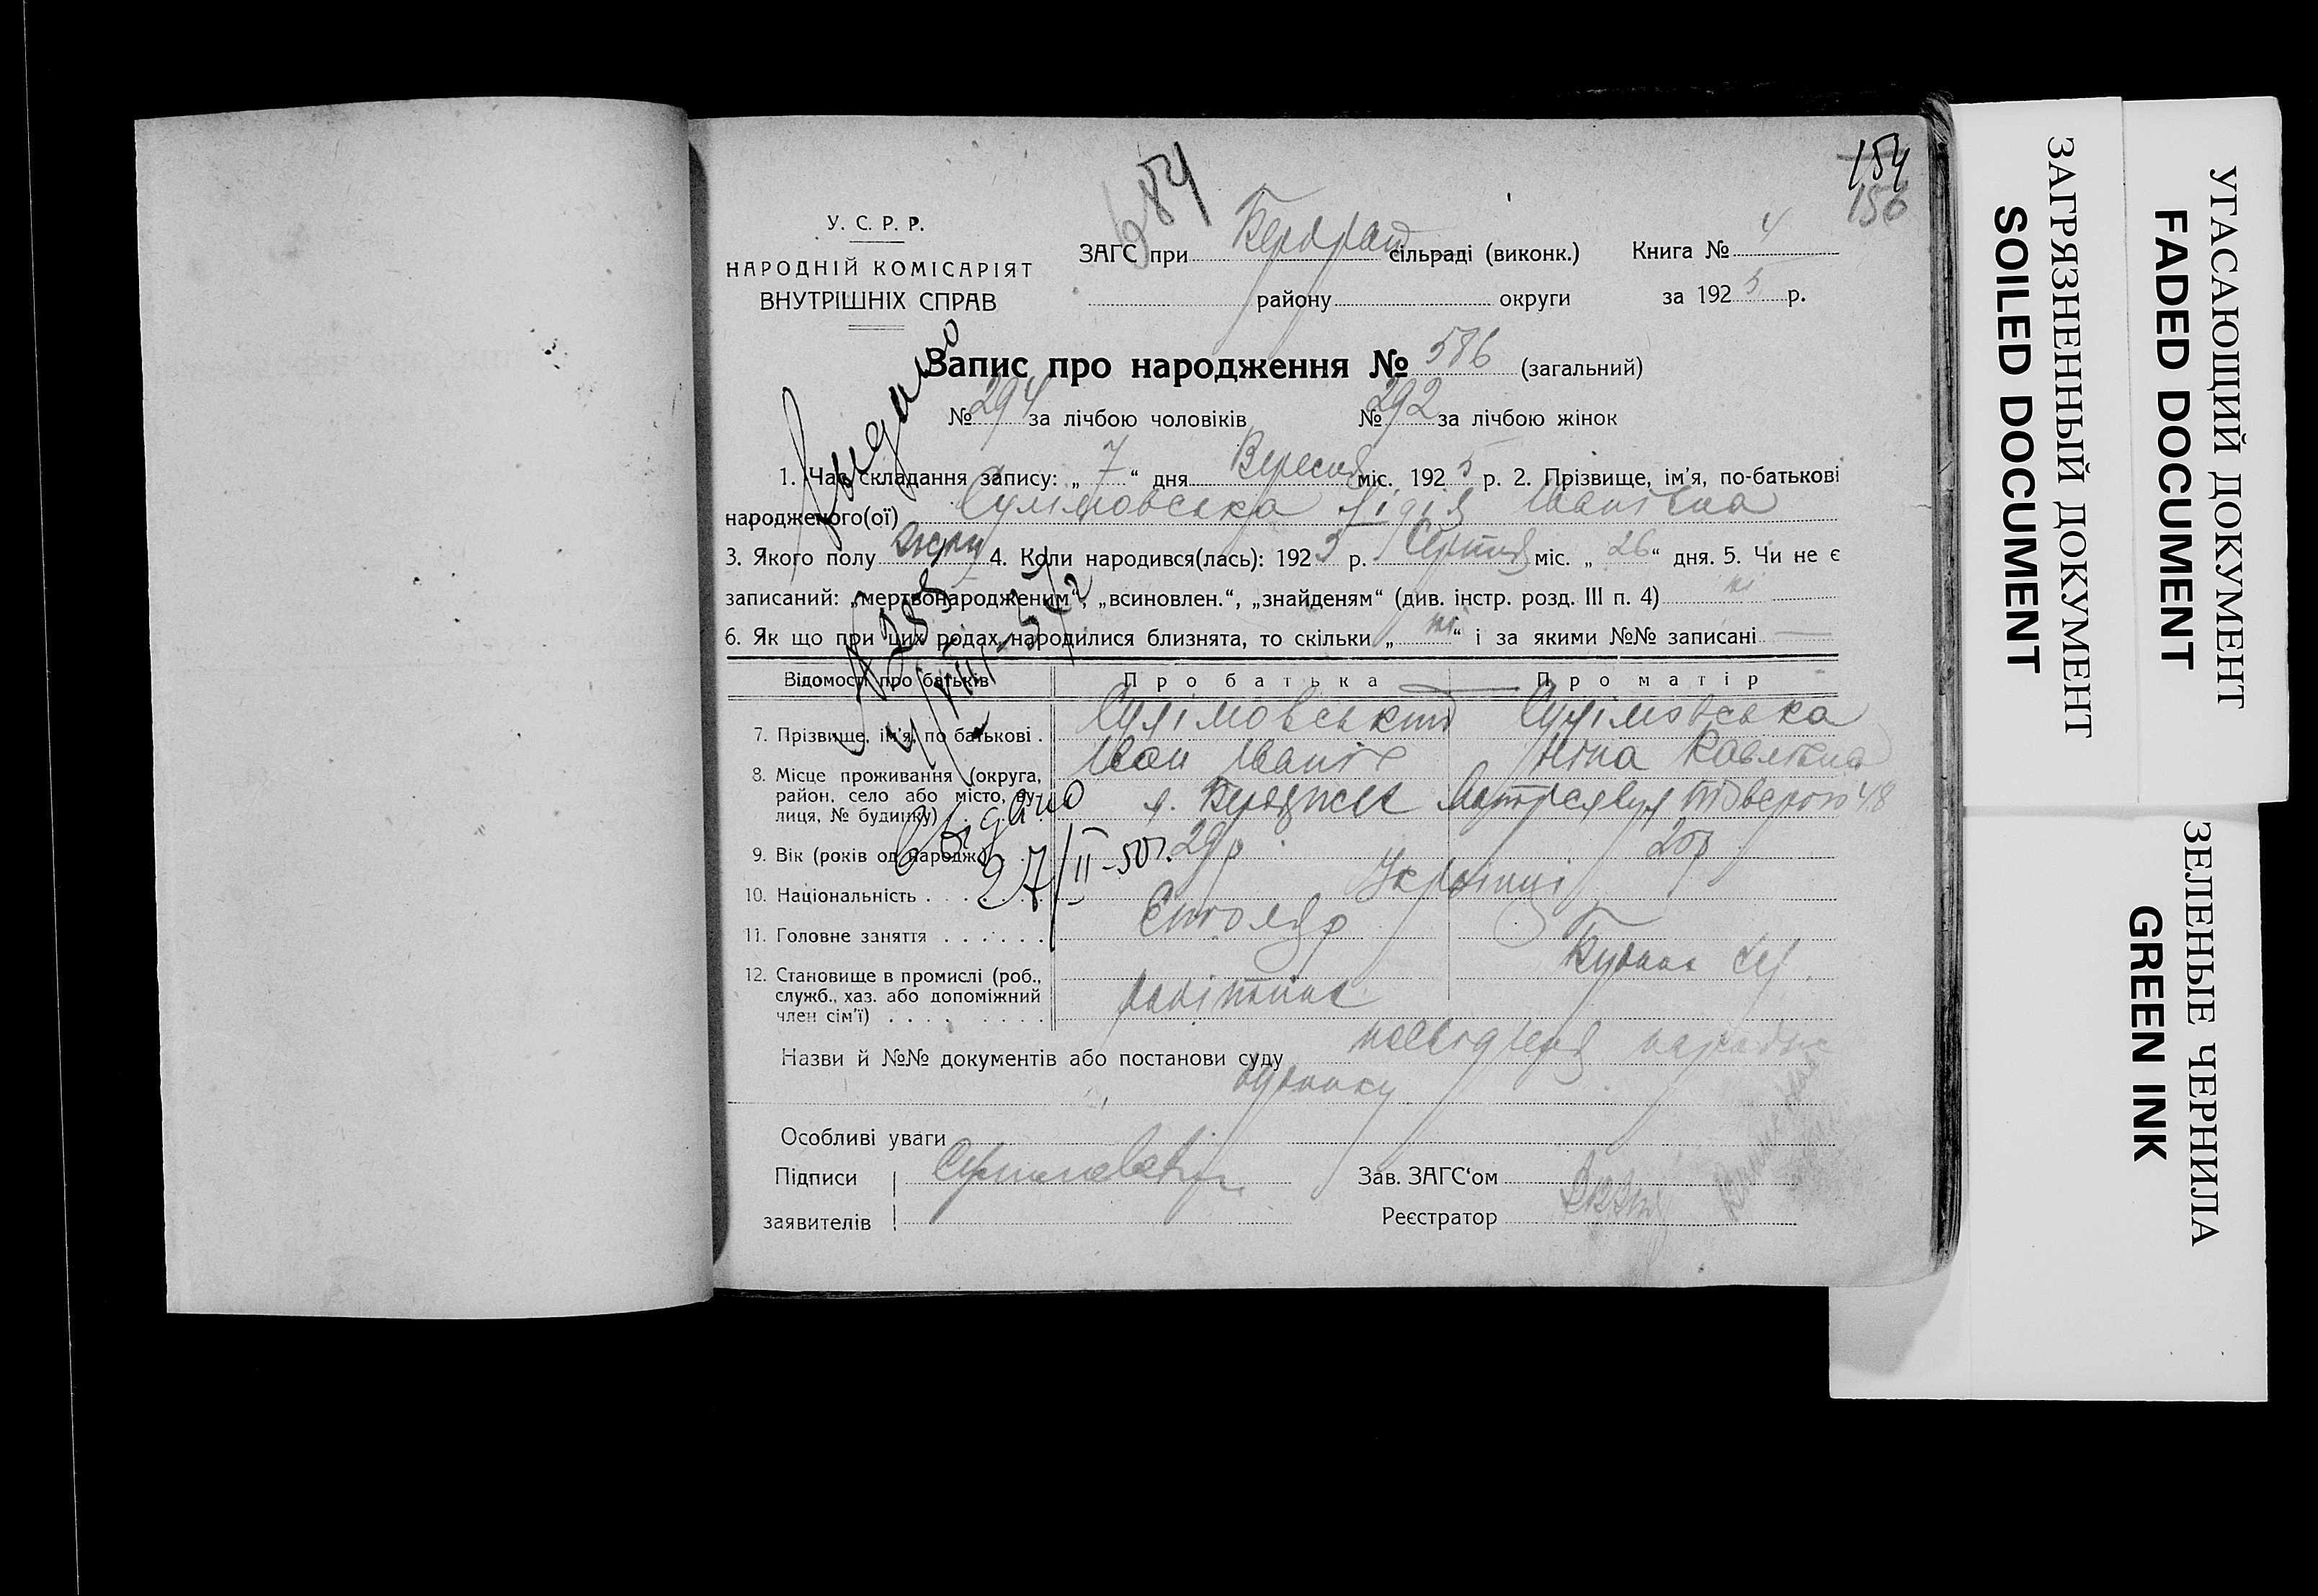 154
150
684
У. С. Р. Р.
НАРОДНІЙ КОМІСАРІЯТ
ВНУТРІШНІХ СПРАВ
ЗАГС при сільраді (виконк.) Книга № 4
району округи за 1925 р.
Запис про народження № 586 (загальний)
№ 294 за лічбою чоловіків № 292 за лічбою жінок
1. Час складання запису: „ 7 “ дня Вересня міс. 1925 р. 2. Прізвище, ім'я, по-батькові
народженого(ої) Сулімовська Лідія Іванівна
3. Якого полу 4. Коли народився(лась): 1925 р. Серпня міс. „ 26 “ дня. 5. Чи не є
записаний: „мертвонародженим“, „всиновлен.“, „знайденям“ (див. інстр. розд. III п. 4) ні
6. Як що при цих родах народилися близнята, то скільки „ ні “ і за якими №№ записані —
Відомості про батьків Про батька Про матір
7. Прізвище, ім'я, по батькові . Сулімовський Сулімовська
Іван Іваніч Ніна
8. Місце проживання (округа,
район, село або місто, вулиця, № будинку) 48
9. Вік (років од народж.) 29р 20р
10. Національність Українці
11. Головне заняття Столяр
12. Становище в промислі (роб.,
служб., хаз. або допоміжний
член сім'ї) робітник
Назви й №№ документів або постанови суду посвідченя
будинку
Особливі уваги
Підписи Зав. ЗАГС'ом
заявителів Реєстратор
видано
27/II-50г.
УГАСАЮЩИЙ ДОКУМЕНТ
FADED DOCUMENT
ЗАГРЯЗНЕННЫЙ ДОКУМЕНТ
SOILED DOCUMENT
ЗЕЛЕНЫЕ ЧЕРНИЛА
GREEN INK